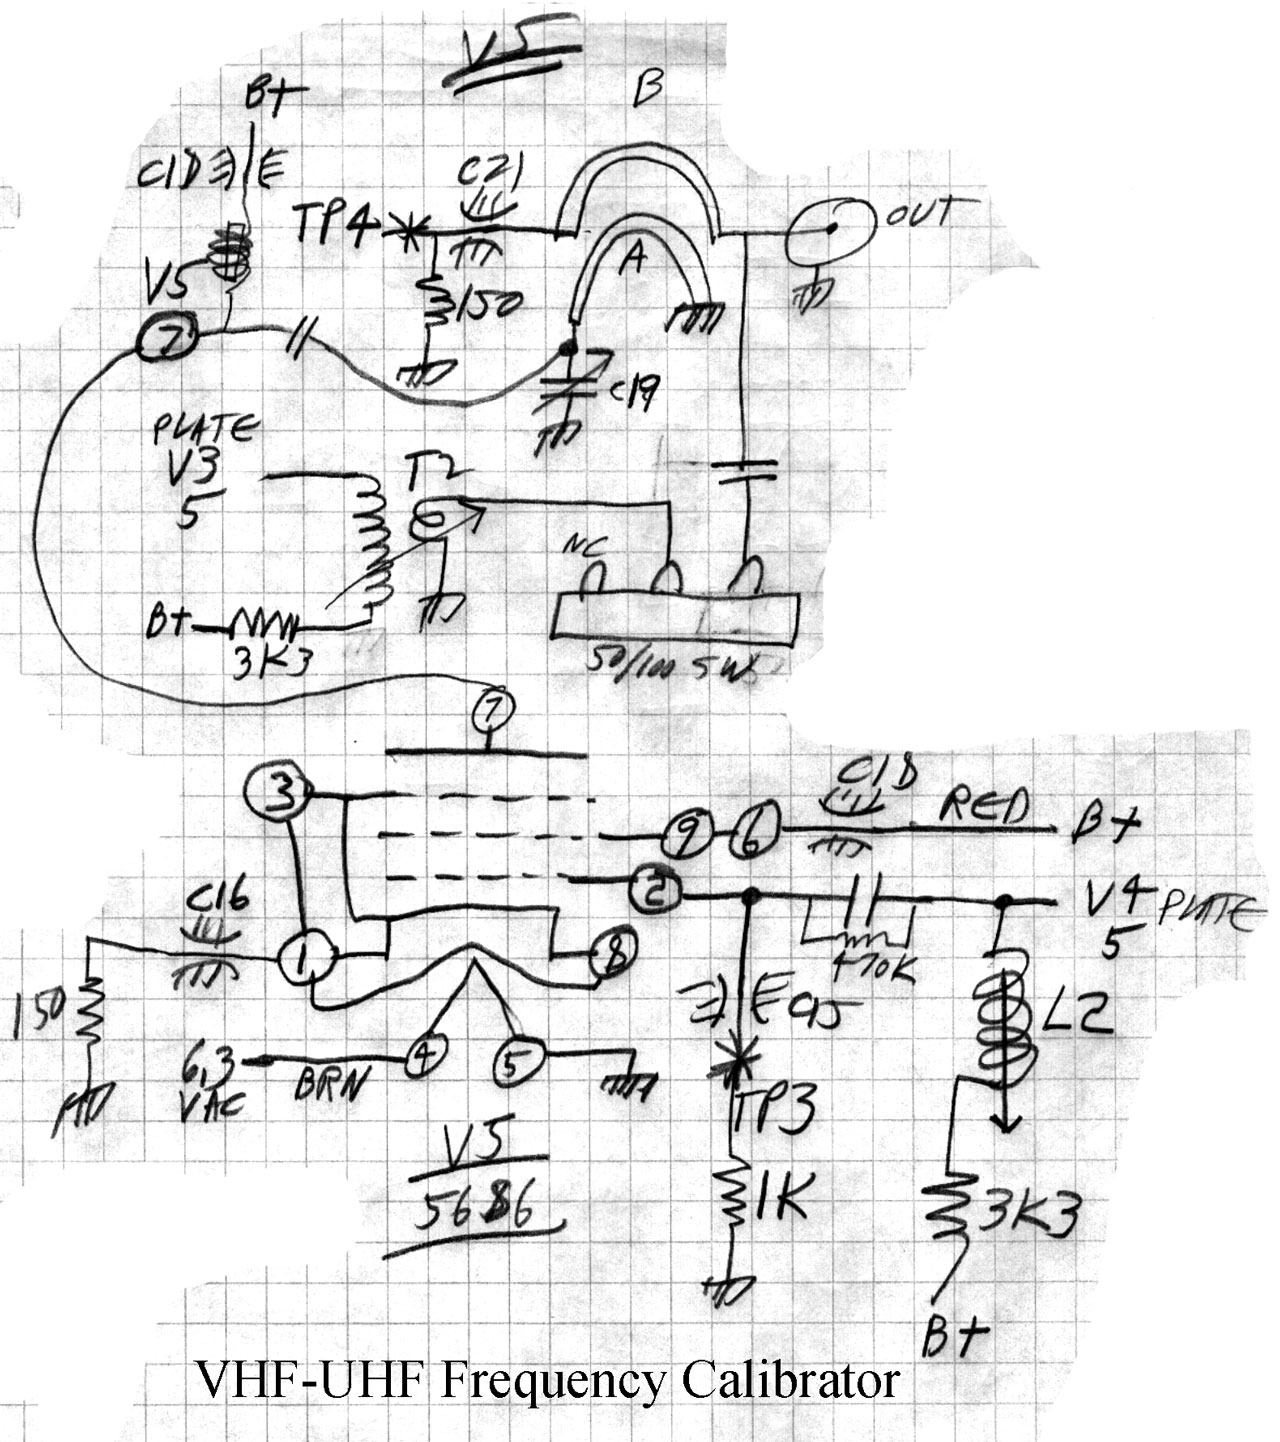 V5
B+
B
C1D
C21
TP4
OUT
A
V5
150
7
C19
PLATE
V3
5
T2
NC
B+
3K3
50/100 SW
7
3
C18
RED
9
6
B+
2
C16
V4 PLATE
5
1
8
470K
150
L2
6,3
VAC
BRN
4
5
TP3
V5
5686
1K
3K3
B+
VHF-UHF Frequency Calibrator